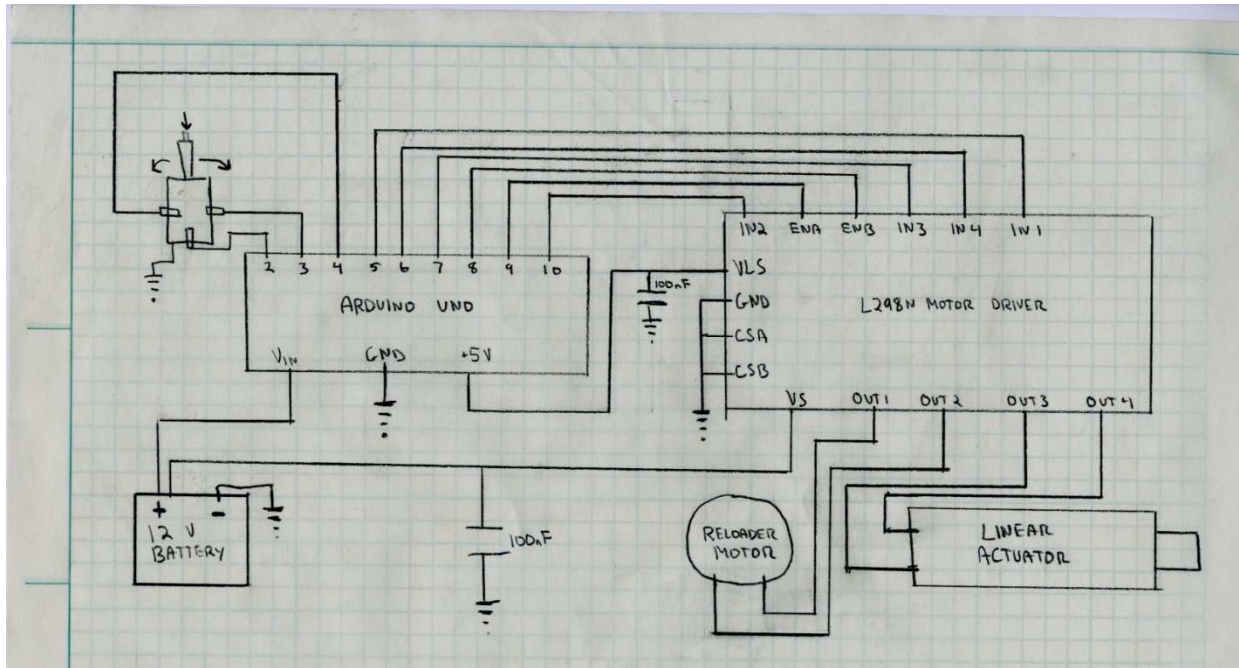 2 3 4 5 6 7 8 9 10
ARDUINO UNO
VIN GND +5V
IN2 ENA ENB IN3 IN4 IN1
VLS
GND
CSA
CSB
L298N MOTOR DRIVER
VS OUT1 OUT2 OUT3 OUT4
100nF
+ -
12 V
BATTERY
100nF
RELOADER
MOTOR
LINEAR
ACTUATOR